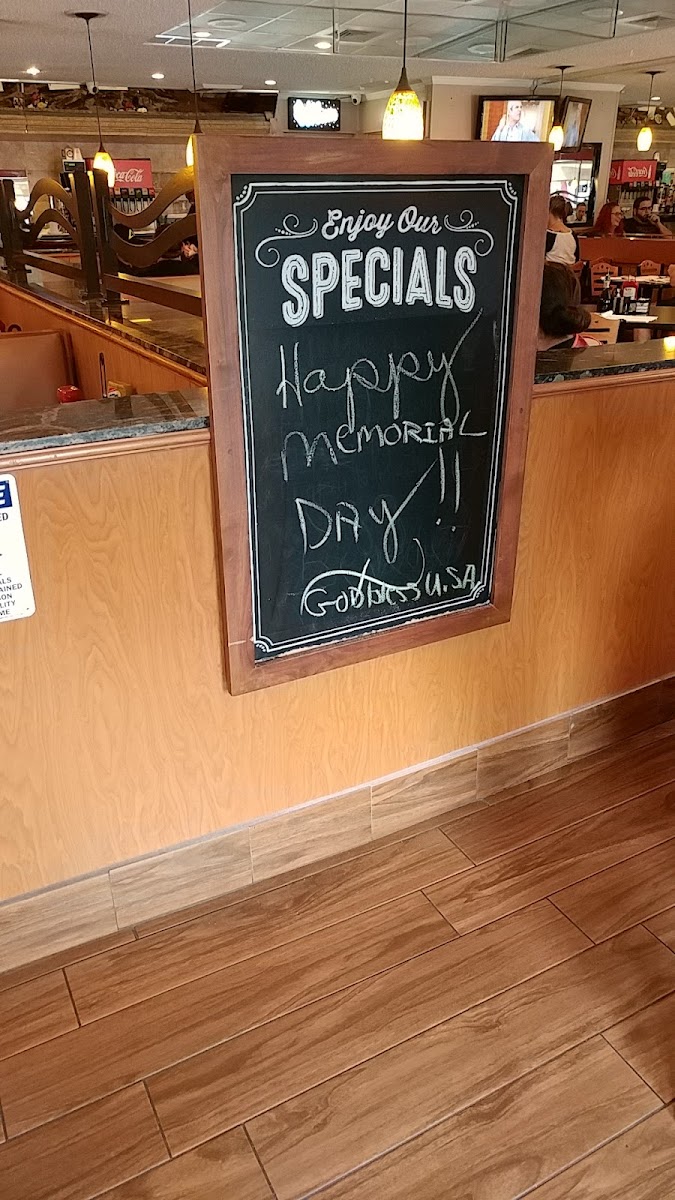 Enjoy Our
SPECIALS
Happy
MEMORIAL
DAY!!
GODBLESS U.SA
Coca-Cola
E
ED
ALS
AINED
ION
LITY
ME